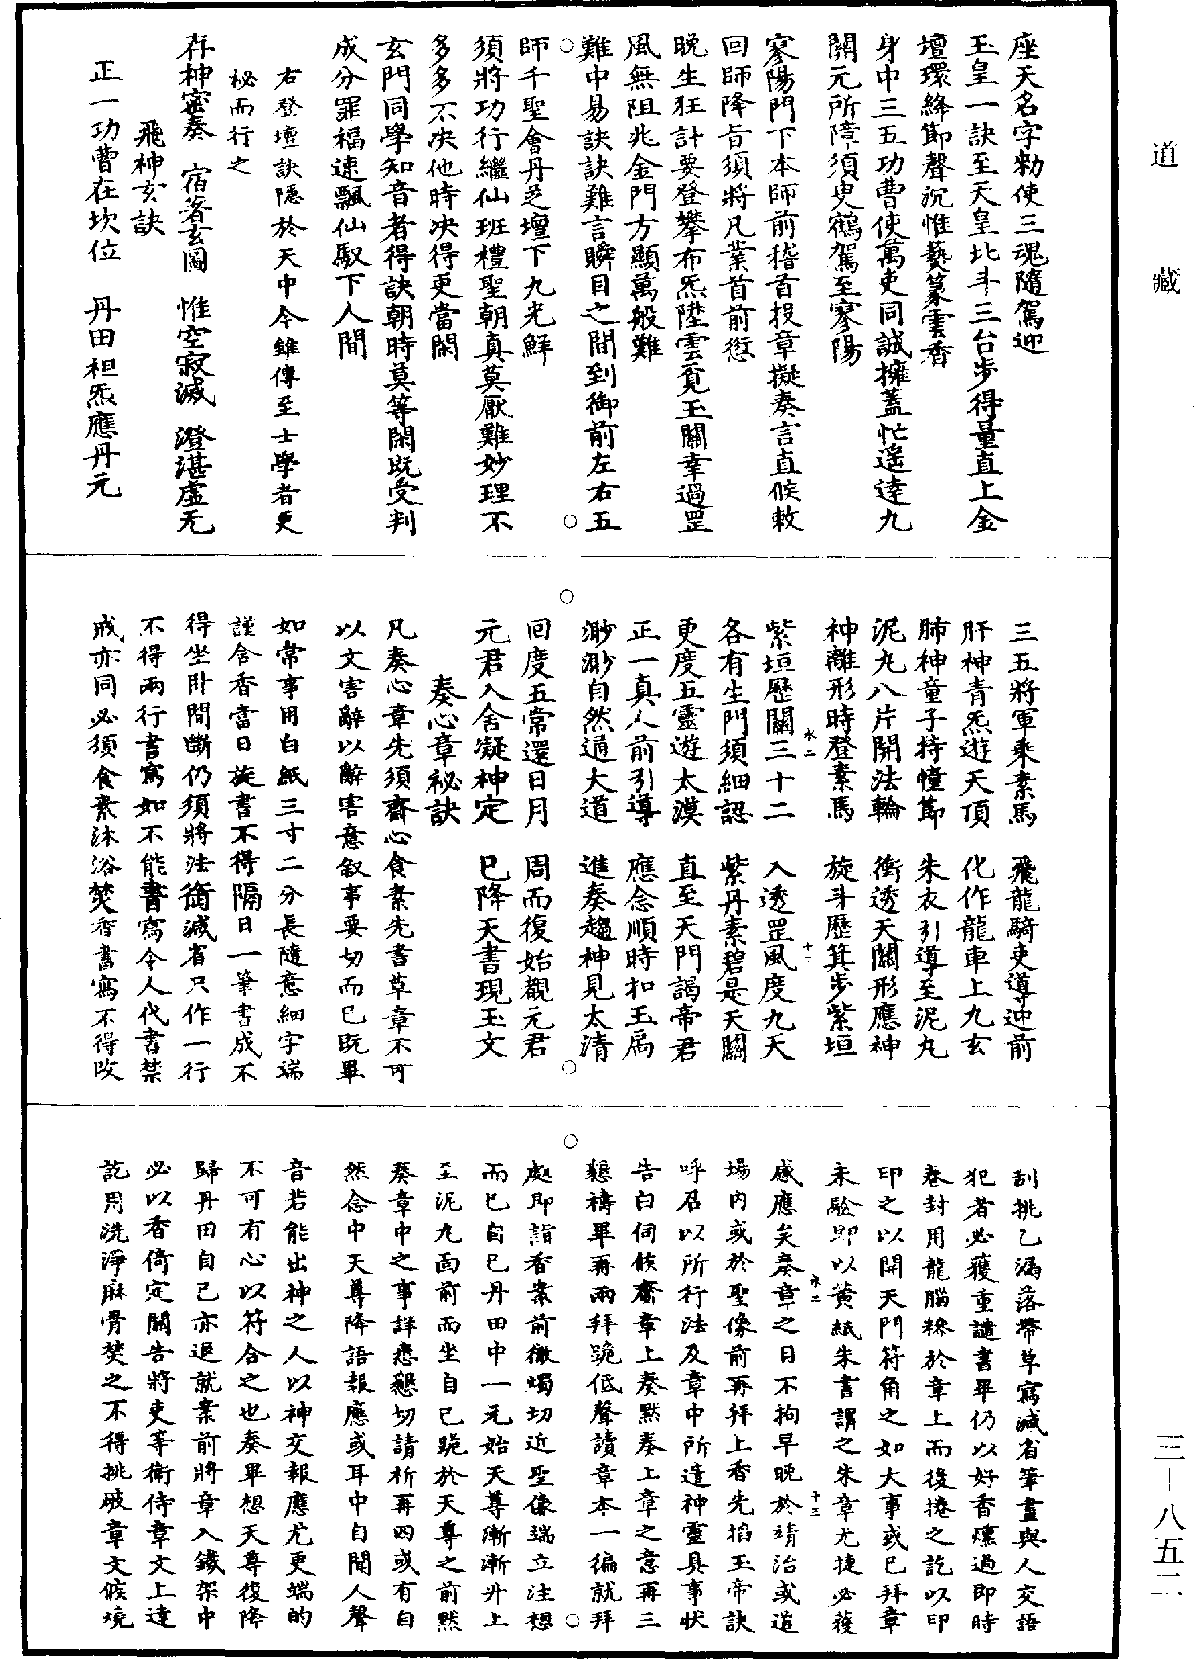 道藏
三一八五二
座天名字勑使三魂隨駕迎
玉皇一訣至天皇北斗三台步得量直上金
壇環絳節聲沉惟藝篆雲香
身中三五功曹使萬吏同誠擁蓋忙遥達九
關元所障須臾鶴駕至寥陽
寥陽門下本師前稽首投章擬奏言直候敕
回師降旨須將凡業首前愆
晚生狂計要登攀布炁陞雲覓玉關幸過罡
風無阻兆金門方顯萬般難
難中易訣訣難言瞬目之間到御前左右五
師千聖會丹芝壇下九光鮮
須將功行繼仙班禮聖朝真莫厭難妙理不
多多不决他時决得更當閑
玄門同學知音者得訣朝時莫等閑既受判
成分罪福速飄仙馭下人間
右登壇訣隱於天中今雖傳至士學者更
秘而行之
存神密奏　宿著玄圖　惟空寂滅　澄湛虚无
飛神玄訣
正一功曹在坎位　丹田袒炁應丹元
三五將軍乘素馬　飛龍騎吏導迎前
肝神青炁遊天頂　化作龍車上九玄
肺神童子持幢節　朱衣引導至泥丸
泥丸八片開法輪　衝透天關形應神
神離形時登素馬　旋斗歷箕步紫垣
紫垣歷關三十二　入透罡風度九天
各有生門須細認　紫丹素碧是天關
更度五靈遊太漠　直至天門謁帝君
正一真人前引導　應念順時扣玉扃
渺渺自然通大道　進奏趨神見太清
回度五常還日月　周而復始覲元君
元君入舍凝神定　已降天書現玉文
奏心章祕訣
凡奏心章先須齋心食素先書草章不可
以文害辭以辭害意叙事要切而已既畢
如常事用白紙三寸二分長隨意細字端
謹含香當日旋書不得隔日一筆書成不
得坐卧間斷仍須將法銜減省只作一行
不得兩行書寫如不能書寫令人代書禁
戒亦同必須食素沐浴焚香書寫不得改
刮挑乙漏落帶草寫減省筆畫與人交語
犯者必獲重譴書畢仍以好香燻過即時
卷封用龍腦糝於章上而後捲之訖以印
印之以開天門符角之如大事或已拜章
未驗即以黃紙朱書謂之朱章尤捷必獲
感應矣奏章之日不拘早晚於靖治或道
場内或於聖像前再拜上香先掐玉帝訣
呼召以所行法及章中所遣神靈具事狀
告白伺候齋章上奏默奏上章之意再三
懇禱畢再兩拜跪低聲讀章本一徧就拜
處即詣香案前徹燭切近聖像端立注想
而已自已丹田中一元始天尊漸漸升上
至泥丸面前而坐自已跪於天尊之前黙
奏章中之事詳悉懇切請祈再四或有自
然念中天尊降語報應或耳中自聞人聲
音若能出神之人以神交報應尤更端的
不可有心以符合之也奏畢想天尊復降
歸丹田自已亦退就案前將章入鐵架中
必以香倚定關告將吏等衛侍章文上達
訖用洗淨麻骨焚之不得挑破章文候燒